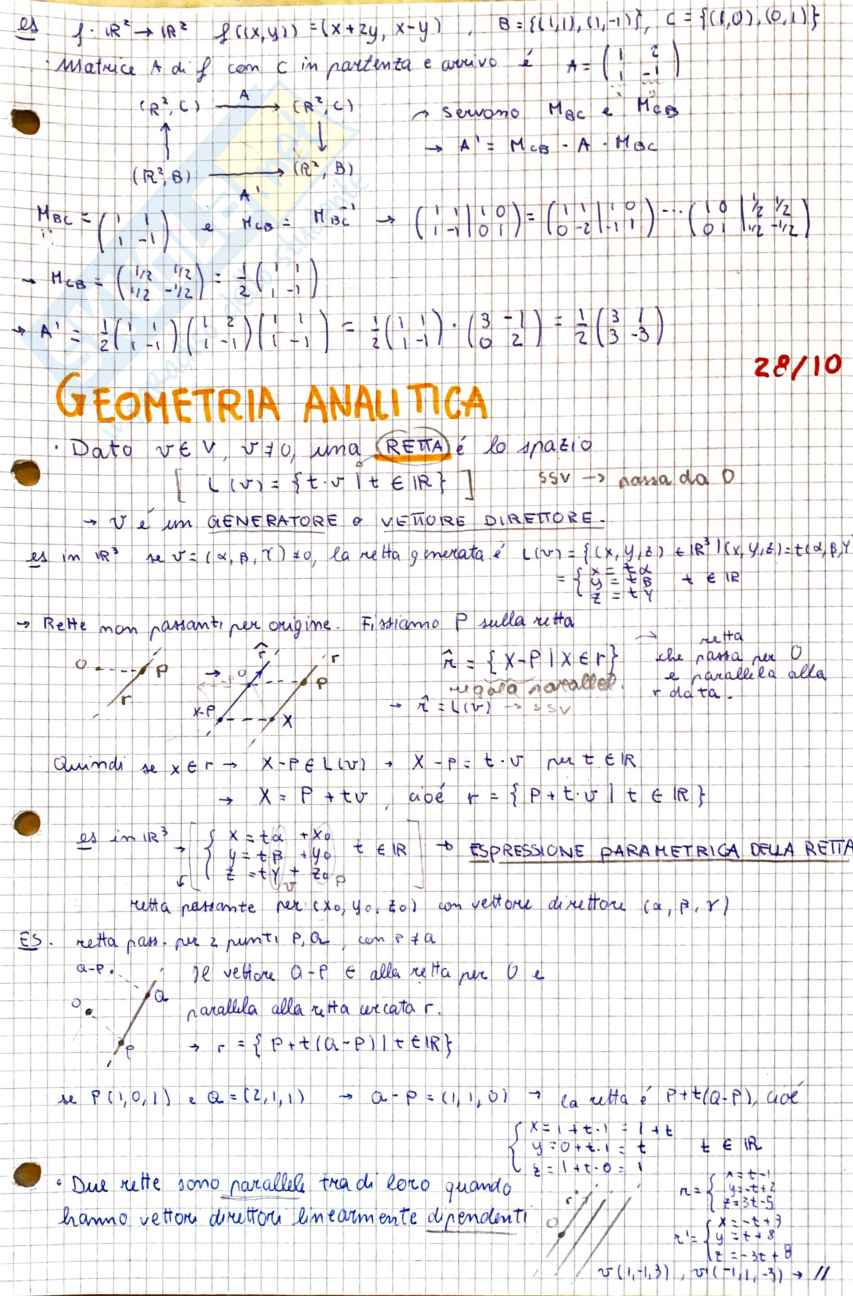 es f: ℝ² → ℝ² f((x,y)) = (x+2y, x-y) , B = {(1,1), (1,-1)}, C = {(1,0), (0,1)}
· Matrice A di f con C in partenza e arrivo é A = (1 2 / 1 -1)
(ℝ², C) —A→ (ℝ², C) → servono M_BC e M_CB
↑ ↓ → A' = M_CB · A · M_BC
(ℝ², B) —A'→ (ℝ², B)
M_BC = (1 1 / 1 -1) e M_CB = M_BC⁻¹ → (1 1 | 1 0 / 1 -1 | 0 1) = (1 1 | 1 0 / 0 -2 | -1 1) ... (1 0 | 1/2 1/2 / 0 1 | 1/2 -1/2)
→ M_CB = (1/2 1/2 / 1/2 -1/2) = 1/2 (1 1 / 1 -1)
→ A' = 1/2 (1 1 / 1 -1) (1 2 / 1 -1) (1 1 / 1 -1) = 1/2 (1 1 / 1 -1) · (3 -1 / 0 2) = 1/2 (3 1 / 3 -3)
28/10
GEOMETRIA ANALITICA
· Dato v ∈ V, v ≠ 0, una RETTA é lo spazio
[ L(v) = {t·v | t ∈ ℝ} ] SSV → passa da 0
→ v é un GENERATORE o VETTORE DIRETTORE.
es in ℝ³ se v = (α, β, γ) ≠ 0, la retta generata é L(v) = {(x,y,z) ∈ ℝ³ | (x,y,z) = t(α,β,γ
= { x = tα
y = tβ t ∈ ℝ
z = tγ
→ Rette non passanti per origine. Fissiamo P sulla retta
0 P r → r̂ 0 r P X-P X
r̂ = {X-P | X ∈ r} → retta che passa per 0 e parallela alla r data.
regola parallel.
→ r̂ = L(v) → SSV
Quindi se x ∈ r → X-P ∈ L(v) → X-P = t·v per t ∈ ℝ
→ X = P + tv, cioé r = {P + t·v | t ∈ ℝ}
es in ℝ³ → [ { x = tα + x₀
y = tβ + y₀ t ∈ ℝ ] → ESPRESSIONE PARAMETRICA DELLA RETTA
z = tγ + z₀
v P
retta passante per (x₀, y₀, z₀) con vettore direttore (α, β, γ)
ES. retta pass. per 2 punti P, Q, con P ≠ Q
Q-P 0 Q P
Il vettore Q-P ∈ alla retta per 0 e
parallela alla retta cercata r.
→ r = {P + t(Q-P) | t ∈ ℝ}
se P(1,0,1) e Q = (2,1,1) → Q-P = (1,1,0) → la retta é P+t(Q-P), cioé
{ x = 1+t·1 = 1+t
y = 0+t·1 = t t ∈ ℝ
z = 1+t·0 = 1
· Due rette sono parallele tra di loro quando
hanno vettori direttori linearmente dipendenti
0 r
r = { x = t-1
y = -t+2
z = 3t-5
r' = { x = -t+3
y = t+8
z = -3t+8
v(1,-1,3), v'(-1,1,-3) → //